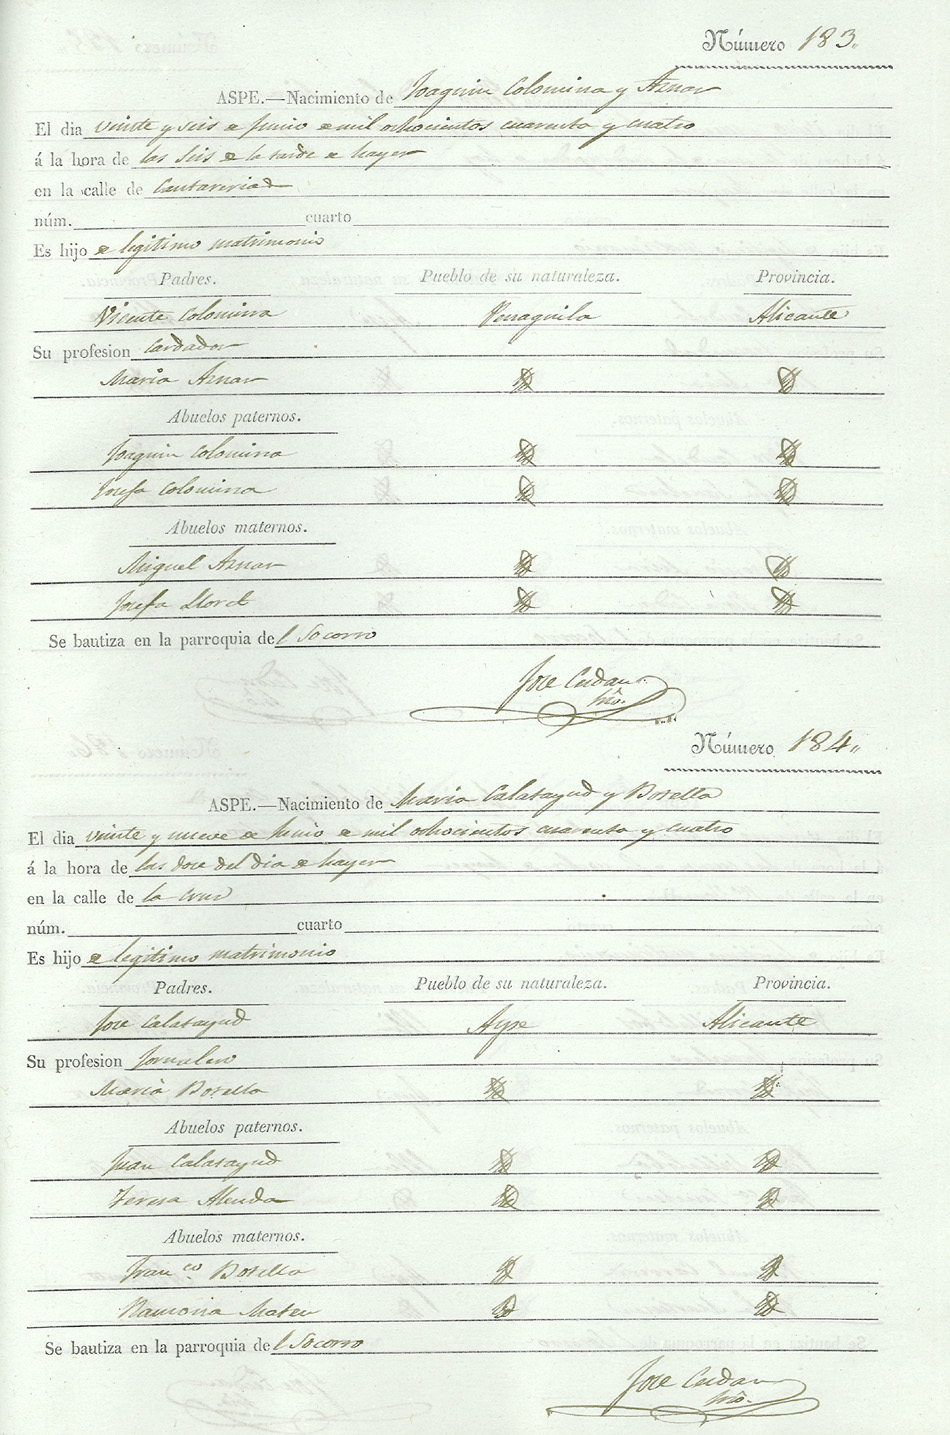 Número 183.
ASPE.—Nacimiento de Joaquin Colomina y Aznar
El dia veinte y seis de Junio de mil ochocientos cuarenta y cuatro
á la hora de las seis de la tarde de hayer
en la calle de Cantareria
núm. cuarto
Es hijo de legitimo matrimonio
Padres. Pueblo de su naturaleza. Provincia.
Vicente Colomina Penaguila Alicante
Su profesion Cardador
Maria Aznar
Abuelos paternos.
Joaquin Colomina
Josefa Colomina
Abuelos maternos.
Miguel Aznar
Josefa Lloret
Se bautiza en la parroquia del Socorro
Jose
Número 184.
ASPE.—Nacimiento de Maria Calatayud y Botella
El dia veinte y nueve de Junio de mil ochocientos cuarenta y cuatro
á la hora de las doce del dia de hayer
en la calle de la Cruz
núm. cuarto
Es hijo de legitimo matrimonio
Padres. Pueblo de su naturaleza. Provincia.
Jose Calatayud Aspe Alicante
Su profesion Jornalero
Maria Botella
Abuelos paternos.
Juan Calatayud
Teresa Alenda
Abuelos maternos.
Franco Botella
Ramona Mateu
Se bautiza en la parroquia del Socorro
Jose